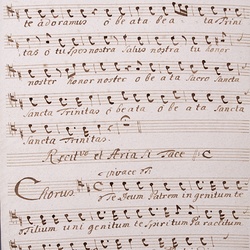 te adoramus o be ata be a ta Trini
tas o tu spes nostra Salus nostra tu honor
noster honor noster o be ata Sacro Sancta
Sancta Trinitas o be ata o be ata Sancta
Sancta Trinitas.
Recit:vo et Aria Tace
Chorus
o Te Deum Patrem in genitum te
Filium uni genitum te Spiritum Paraclitum